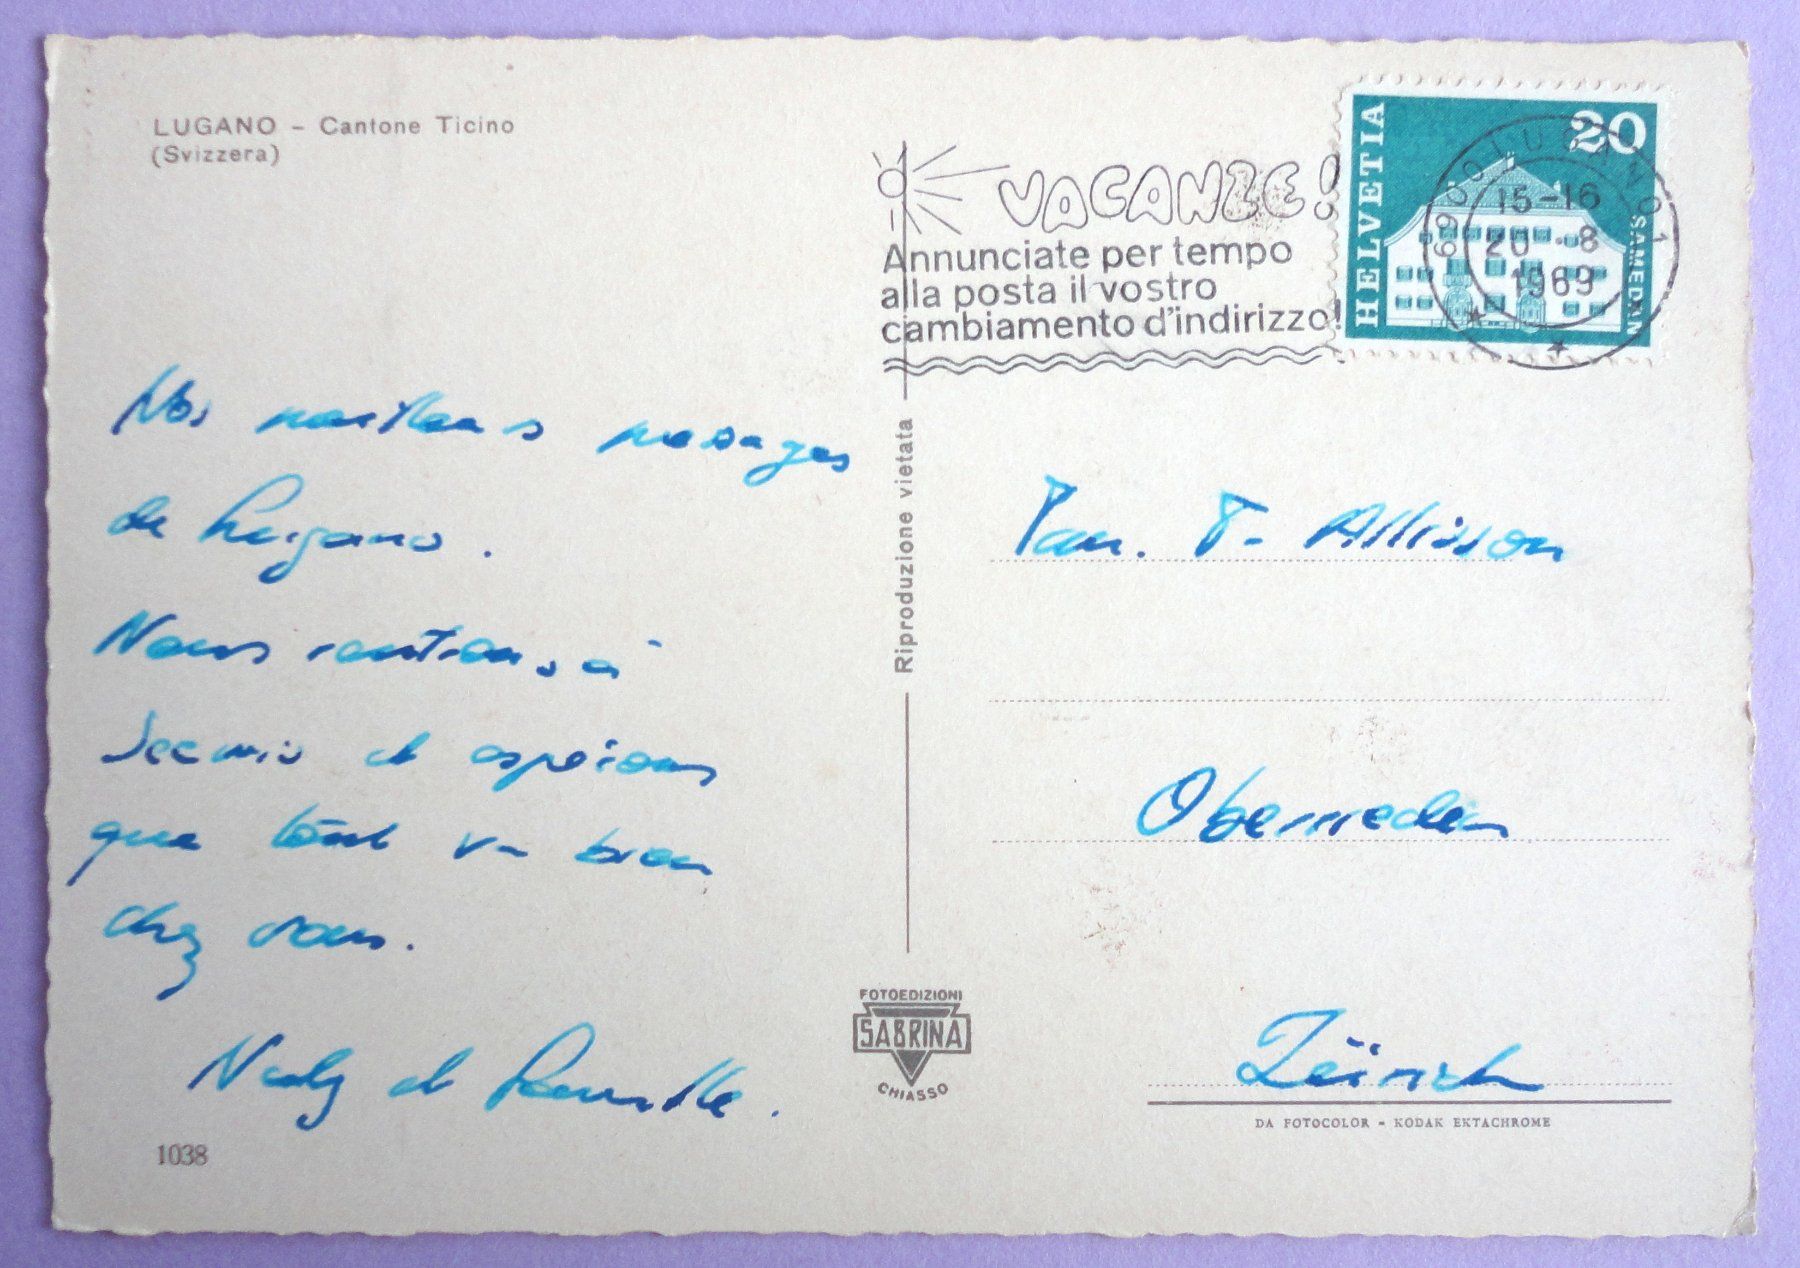 LUGANO - Cantone Ticino
(Svizzera)
VACANZE!
Annunciate per tempo
alla posta il vostro
cambiamento d'indirizzo!
HELVETIA
20
SAMEDAN
6900 LUGANO 1
15-16
20.-8
1969
Nos meilleurs messages
de Lugano.
Nous rentrons à
et espérons
que tout va bien
chez vous.
et famille.
1038
Riproduzione vietata
Fam. T. Allisson
Oberrieden
Zürich
FOTOEDIZIONI
SABRINA
CHIASSO
DA FOTOCOLOR - KODAK EKTACHROME